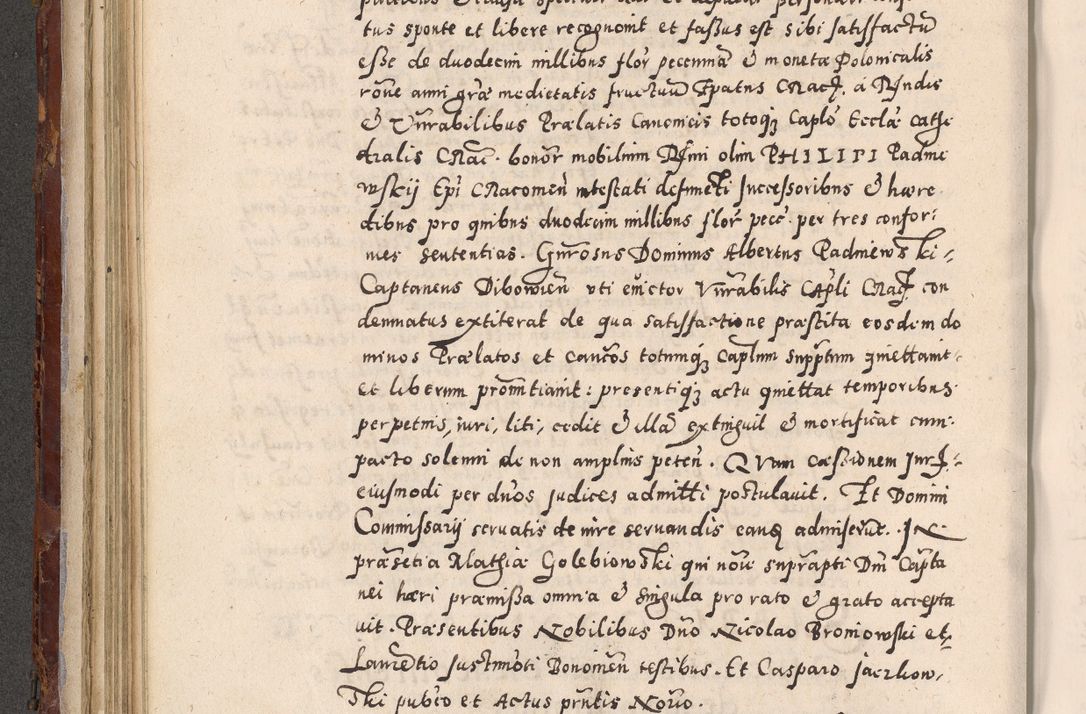 tus sponte et libere recognouit et fassus est sibi satisfactũ
esse de duodecim millibus flor̃ pecunniæ & monetæ Polonicalis
rõne anni grãe medietatis fructuũ Epatus Cracꝭ. á Rndis
& Vñrabilibus Prælatis Canonicis totoqꝫ Caplo Ecclæ cathe
dralis Crac̃. bonor̃ mobilium Rsmi olim PHILIPI Padnie
wskij Epĩ Cracouien̄ intestati defuncti successoribus & hære
dibus pro quibus duodecim millibus flor̃ pecc̃. per tres confor:
mes sententias. Gnrosus Dominus Albertus Padniewski-
Captaneus Dibowien̄ vti euictor Vñrabilis Capli Cracꝭ con
demnatus extiterat de qua satisfactione præstita eosdem do
minos Prælatos et Cancõs totumqꝫ Caplum supptum quiettauit
et liberum pronũtiauit: presentiqꝫ actu quiettat temporibus
perpetuis, iuri, liti, cedit & illã extinguit & mortificat cum
pacto solemni de non amplius peten̄. Quam cæssionem Jurꝭ
eiusmodi per dños judices admitti postulauit. Et Domini
Commissarij seruatis de iure seruandis eandẽ admiserũt. In
præsetia Mathiæ Golebiowski qui noĩe suprapti Dnĩ Capta
nei hæri præmissa omnia & singula pro rato & grato accepta
uit. Præsentibus Nobilibus Dño Nicolao Broniowski et
Laurẽtio Bononien̄ testibus. Et Casparo Jaczkow-
ski pubco et Actus pr̃ntis Norio.